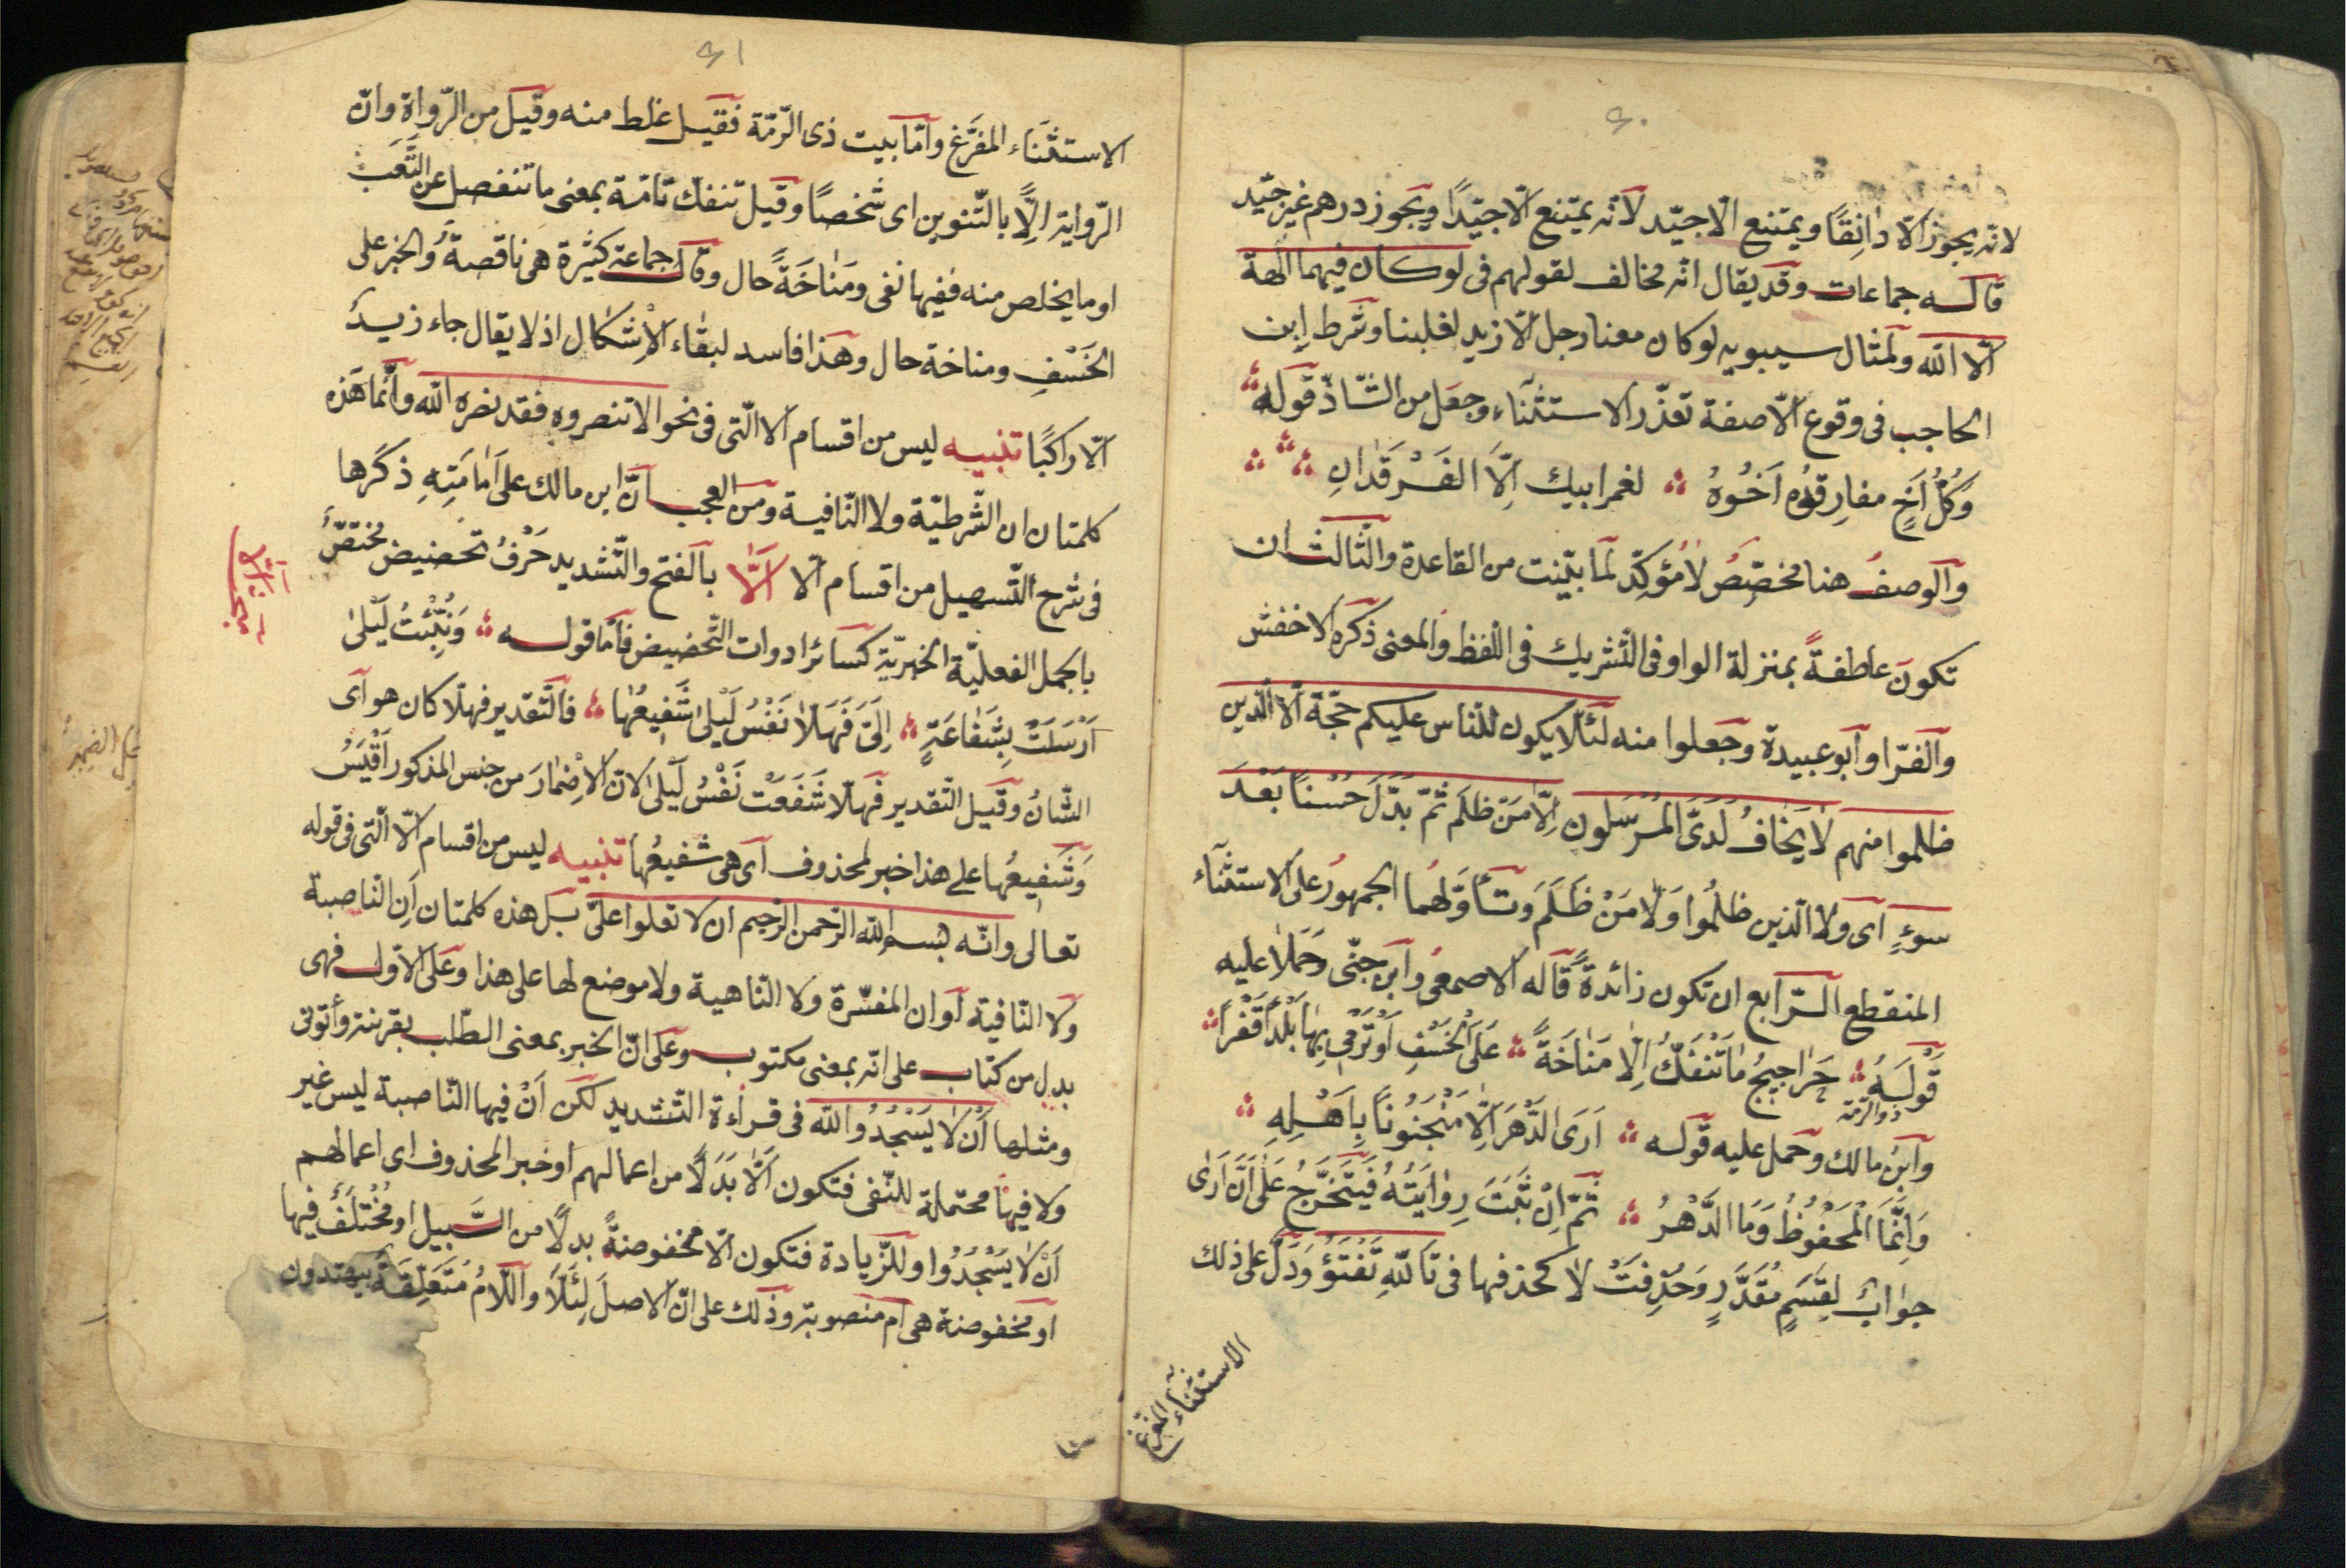 ٤٠
لانه يجوز الّا دانِقًا ويمتنع الّا جيّد لانّه يمتنع الّا جيّدًا ويجوز درهم غير جيّد
قاله جماعات وقد يقال انّه مخالف لقولهم فى لو كان فيهما الهة
الّا الله ولمثال سيبويه لو كان معنا رجل الّا زيد لغلبنا وشرط ابن
الحاجب فى وقوع الّا صفة تعذّر الاستثنآء وجعل من الشّاذّ قوله
وَكُلُّ اَخٍ مفارِقُه اَخُوهُ ؞ لعمر ابيك اِلّا الفَرْقَدانِ ؞
والوصف هنا مخصّص لا مُؤكِّد لما بيّنت من القاعدة والثّالث ان
تكونَ عاطفةً بمنزلة الواو فى التّشريك فى اللّفظ والمعنى ذكره الاخفش
والفرّا وابو عبيدة وجعلوا منه لئلّا يكون للنّاس عليكم حجّة الّا الّذين
ظلموا منهم لا يَخافُ لَدَىَّ المُرْسَلون اِلّا مَن ظلَم ثمّ بدّلَ حُسْنًا بَعْدَ
سوءٍ اى ولا الّذين ظلمُوا وَلا مَنْ ظَلَمَ وتأوّلهُما الجمهورُ على الاستثنآء
المنقطع الرّابع ان تكون زائدةً قاله الاصمعى وابن جنّى وحَمَلا عليه
قَوْلَهُ ؞ حَراجيجُ ما تَنْفَكُّ اِلّا مَناخَةً ؞ عَلَى الْخَسْفِ اَوْ تَرْمِى بِها بَلَدًا قَفْرًا ؞
ذو الرّمّة
وابنُ مالك وحمل عليه قوله ؞ اَرَى الدَّهْرَ اِلّا مَنْجَنُونًا بِاَهْلِهِ ؞
وَاِنَّمَا الْمَحْفُوظُ وَمَا الدَّهْرُ ؞ ثمّ اِنْ ثَبَتَ رِوايَتُهُ فَيَتَخَرَّجُ عَلى اَنَّ اَرَى
جوابٌ لِقَسَمٍ مُقَدَّرٍ وَحُذِفَتْ لا كحذفها فى تَاللّهِ تَفْتَؤُ وَدَلَّ على ذلك
الاستثناء المفرّغ
٤١
الاستثنَاء المفرَّغ وامّا بيت ذى الرّمّة فقيل غلط منه وقيل من الرّواة وانّ
الرّواية اِلًّا بالتّنوين اى شخصًا وقيل تنفكّ تامّة بمعنى ما تنفصل عن التَّعَب
او ما يخلص منه ففيها نفى ومَناخَةً حال وقال جماعة كثيرة هى ناقصةٌ والخبر على
الخَسْفِ ومناخة حال وهذا فاسد لبقاء الاِشكال اذ لا يقال جاء زيدٌ
الّا راكبًا تنبيه ليس من اقسام الا الّتى فى نحو الا تنصروه فقد نصره الله وانّما هَذه
كلمتان ان الشّرطيّة ولا النّافية ومن العجب انّ ابن مالك على اَمامَتِهِ ذكرها
فى شرح التّسهيل من اقسام الّا اَلّا بالفتح والتّشديد حَرْفُ تحضيض مُختصّ
بالجمل الفعليّة الخبريّة كسائر ادوات التّحضيض فامّا قوله ؞ وَنُبِّئْتُ لَيْلىٰ
اَرْسَلَتْ بِشَفاعَةٍ ؞ اِلَىَّ فَهَلّا نَفْسُ لَيْلىٰ شَفِيعُها ؞ فالتّقدير فهلّا كان هو اى
الشّانُ وقيل التّقدير فهلّا شَفَعَتْ نَفْسُ لَيْلىٰ لانّ الاِضمارَ من جنس المذكور اَقْيَسُ
وَشَفِيعُها على هذا خبر لمحذوف اى هى شفيعُها تنبيه ليس من اقسام الّا الّتى فى قوله
تعالى وانّه بسم الله الرّحمن الرّحيم ان لا تعلوا علىّ بل هذه كلمتان اَن النّاصبة
ولا النّافية اَو ان المفسّرة ولا النّاهية ولا موضع لها على هذا وعلى الاوّل فهى
بدل من كتاب على انّه بمعنى مكتوب وعلى انّ الخبر بمعنى الطّلب بقرينة وأتونى
ومثلها اَنْ لا يَسْجُدُوا لله فى قراءة التّشديد لكن اَنْ فيها النّاصبة ليس غير
ولا فيها محتملة للنّفى فتكون اَلّا بَدَلًا من اعمالهم او خبر المحذوف اى اعمالهم
اَنْ لا يَسْجُدُوا وللزّيادة فتكون الّا مخفوضةً بدلًا من السّبيل او مُخْتَلَفٌ فيها
او مخفوضة هى ام منصوبة وذلك على انّ الاصلَ لِئَلّا واللّامُ مُتَعَلِّقَة بيهتدون